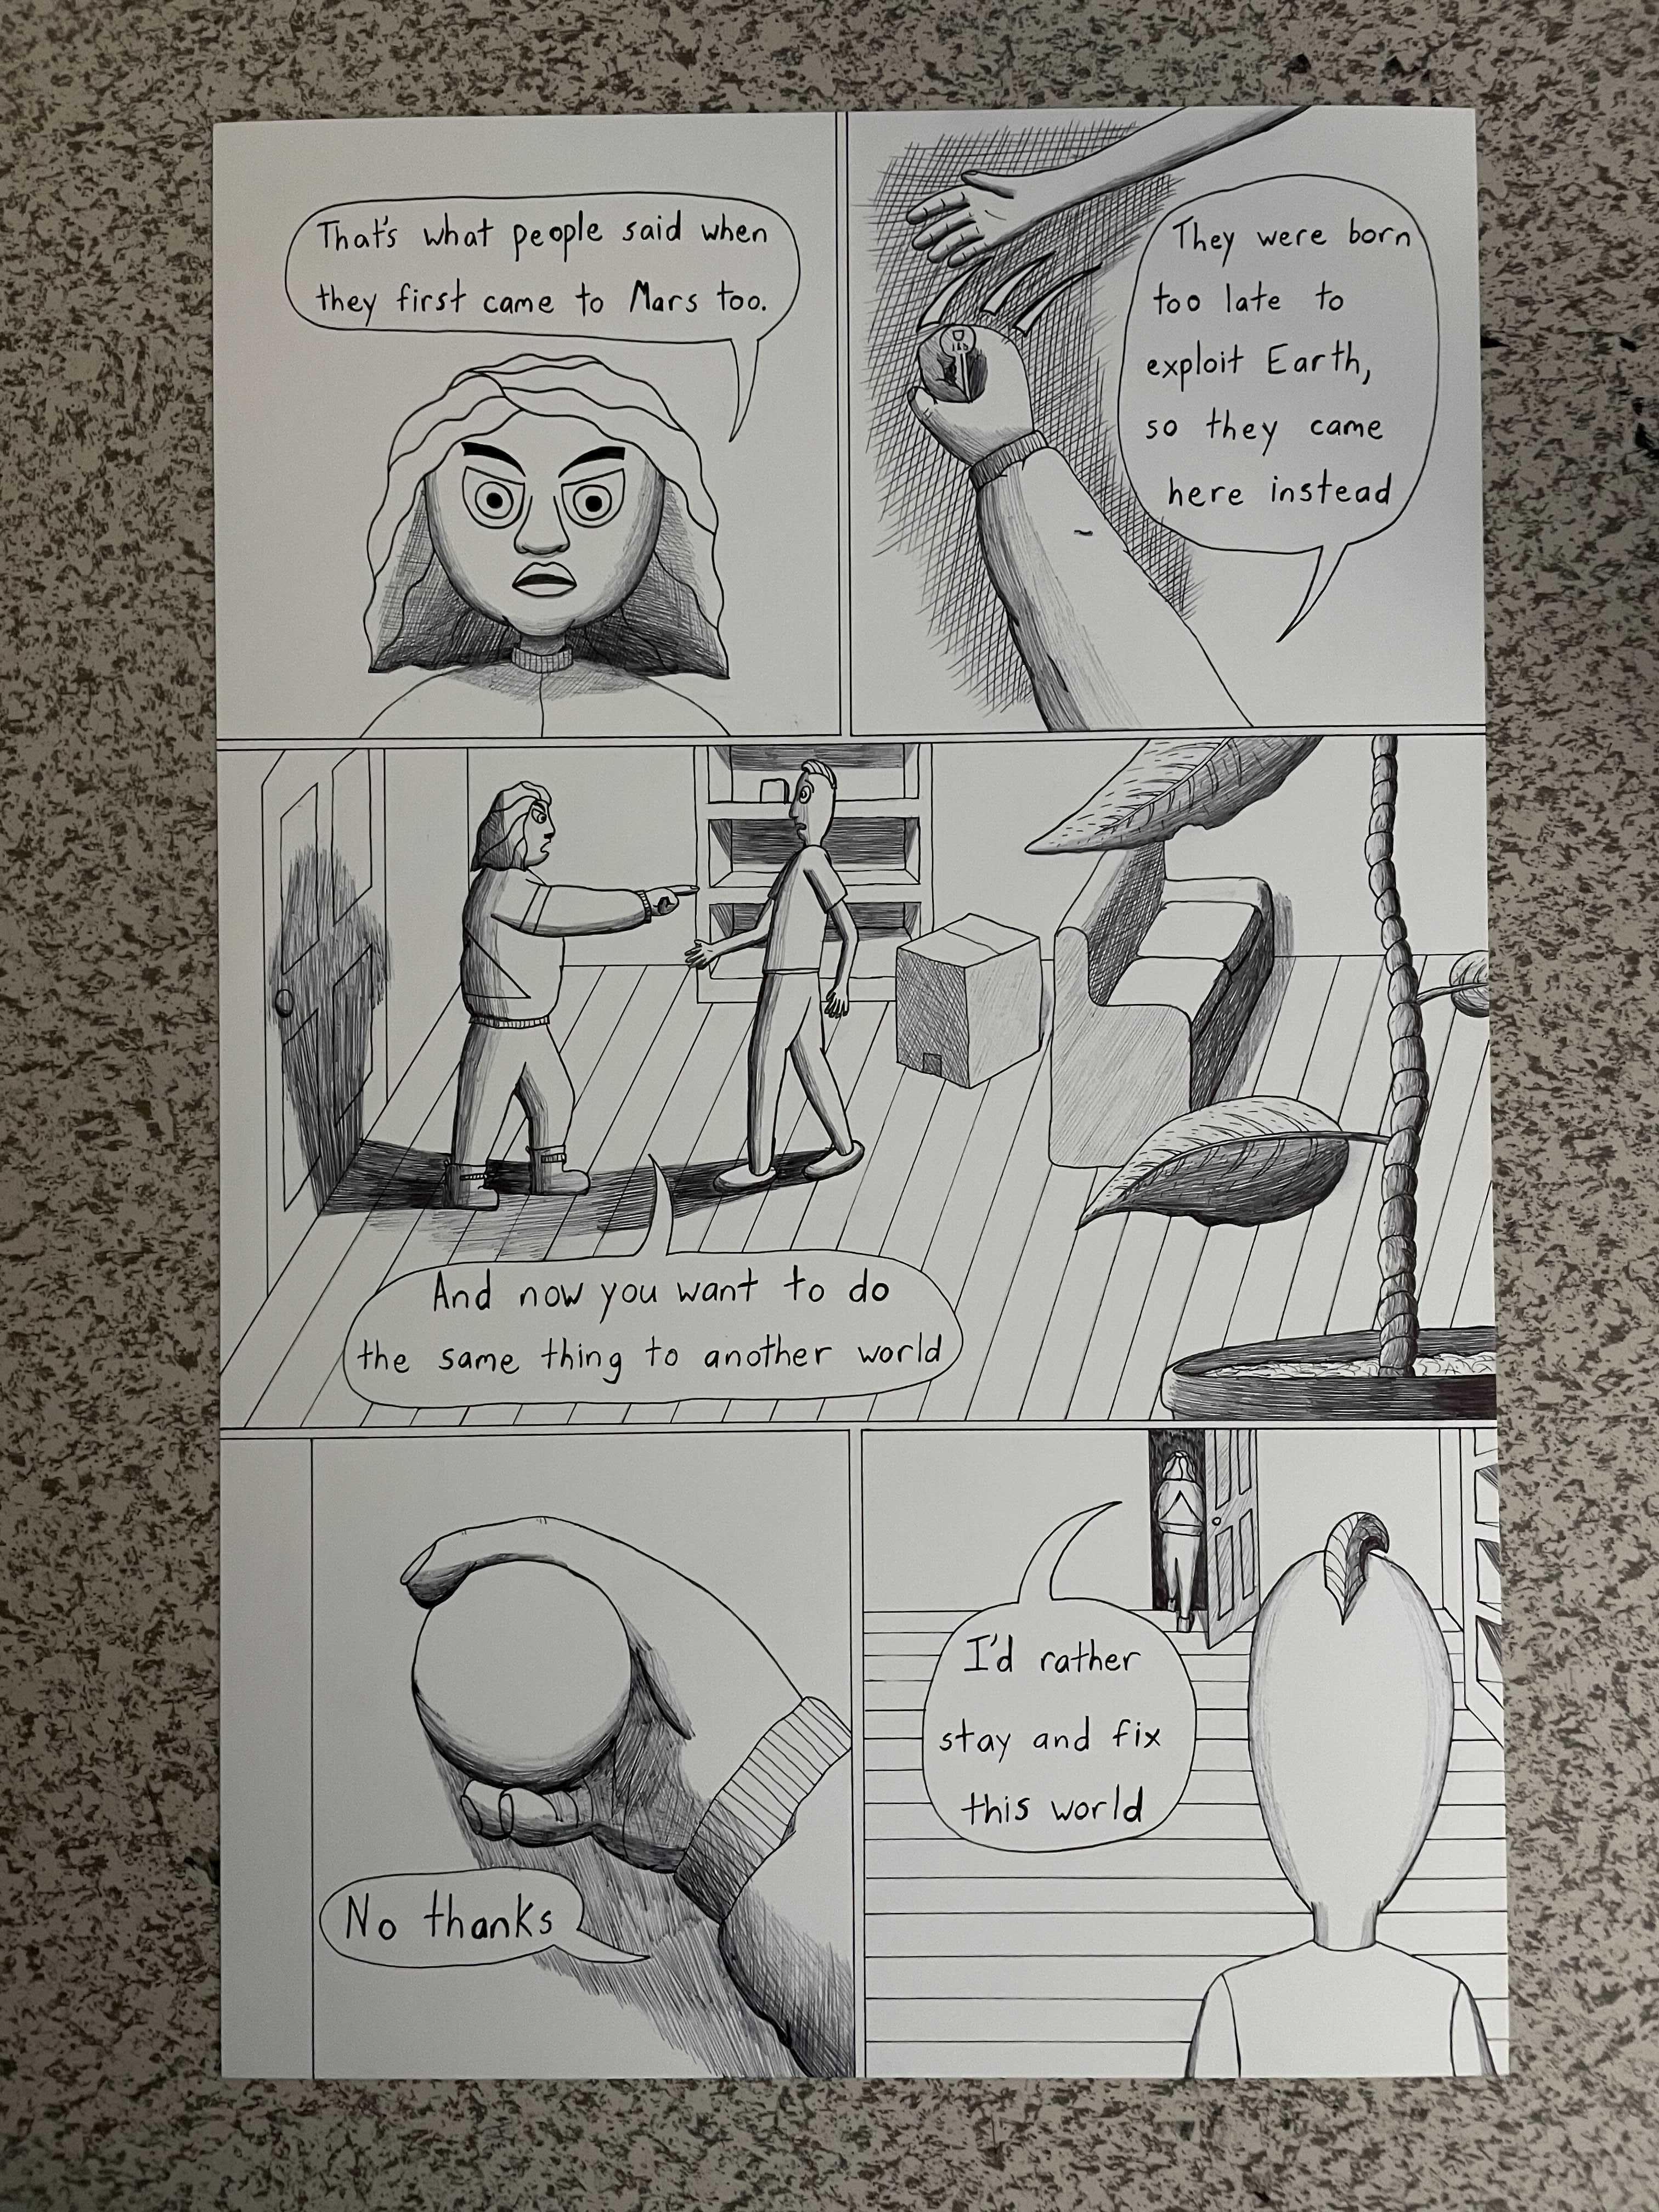 That's what people said when
they first came to Mars too.
They were born
too late to
exploit Earth,
so they came
here instead
And now you want to do
the same thing to another world
No thanks
I'd rather
stay and fix
this world